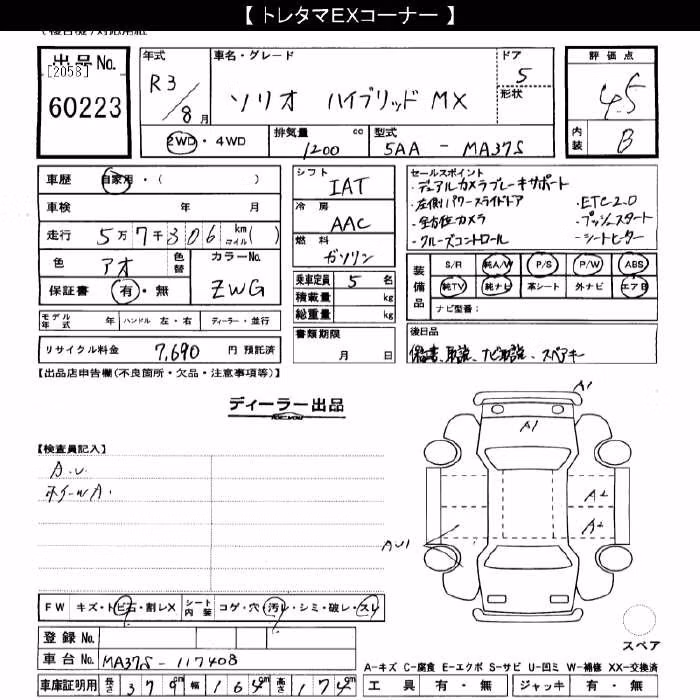 【 トレタマEXコーナー 】
出品No.
[2058]
60223
年式
R3/8月
車名・グレード
ソリオ ハイブリッド MX
ドア
5
形状
2WD・4WD
排気量 cc
1200
型式
5AA - MA37S
評価点
4.5
内装
B
車歴 自家用・( )
車検 年 月
走行 5万7千306 km マイル( )
色 アオ 色替
カラーNo.
ZWG
保証書 有・無
モデル年式 年 ハンドル 左・右 ディーラー・並行
リサイクル料金 7,690 円 預託済
シフト
IAT
冷房
AAC
燃料
ガソリン
乗車定員 5 名
積載量 kg
総重量 kg
書類期限
月 日
セールスポイント
・デュアルカメラブレーキサポート
・左側パワースライドドア ・ETC2.0
・全方位カメラ ・プッシュスタート
・クルーズコントロール ・シートヒーター
装備品
S/R 純A/W P/S P/W ABS
純TV 純ナビ 革シート 外ナビ エアB
ナビ型番:
後日品
保書、取説、ナビ取説、スペアキー
【出品店申告欄(不良箇所・欠品・注意事項等)】
ディーラー出品
【検査員記入】
A.U.
ホイールA.
A1
A1
A2
A2
AU1
スペア
FW キズ・トビ石・割レX シート内装 コゲ・穴・汚レ・シミ・破レ・スレ
登録No.
車台No. MA37S-117408
車庫証明用 長さ 379cm 幅 164cm 高さ 174cm
A-キズ C-腐食 E-エクボ S-サビ U-凹ミ W-補修 XX-交換済
工具 有・無 ジャッキ 有・無